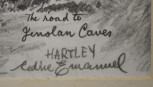 The road to
Jenolan Caves
HARTLEY
Cedric Emanuel